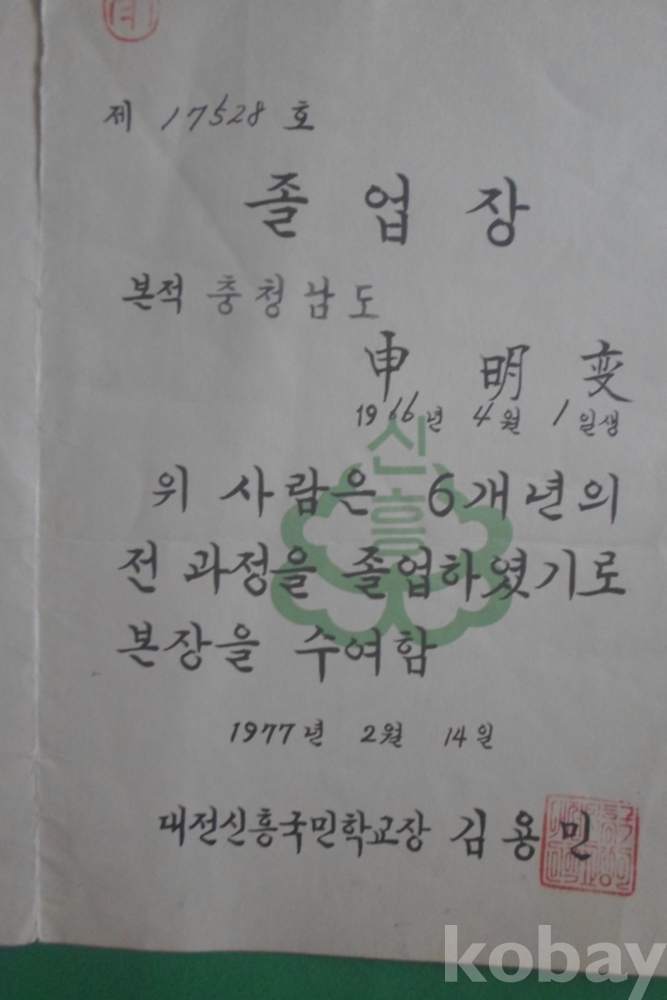 제 17528 호
졸업장
본적 충청남도
申 明 变
1966년 4월 1일생
신흥
위 사람은 6개년의
전 과정을 졸업하였기로
본장을 수여함
1977년 2월 14일
대전신흥국민학교장 김용민
kobay